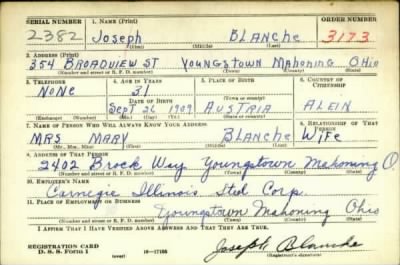 SERIAL NUMBER 1. NAME (Print) ORDER NUMBER
2382 Joseph BLANCHE 3173
(First) (Middle) (Last)
2. ADDRESS (Print)
354 BROADVIEW ST YOUNGSTOWN MAHONING OHIO
(Number and street or R. F. D. number) (Town) (County) (State)
3. TELEPHONE 4. AGE IN YEARS 5. PLACE OF BIRTH 6. COUNTRY OF CITIZENSHIP
NONE 31
DATE OF BIRTH (Town or county)
Sept 26 1909 AUSTRIA ALEIN
(Exchange) (Number) (Mo.) (Day) (Yr.) (State or country)
7. NAME OF PERSON WHO WILL ALWAYS KNOW YOUR ADDRESS 8. RELATIONSHIP OF THAT PERSON
MRS MARY BLANCHE WIFE
(Mr., Mrs., Miss) (First) (Middle) (Last)
9. ADDRESS OF THAT PERSON
2402 Brock Way Youngstown Mahoning O.
(Number and street or R. F. D. number) (Town) (County) (State)
10. EMPLOYER'S NAME
Carnegie Illinois Steel Corp.
11. PLACE OF EMPLOYMENT OR BUSINESS
Youngstown Mahoning Ohio
(Number and street or R. F. D. number) (Town) (County) (State)
I AFFIRM THAT I HAVE VERIFIED ABOVE ANSWERS AND THAT THEY ARE TRUE.
REGISTRATION CARD
D. S. S. Form 1 (over) 16—17105 Joseph Blanche
(Registrant's signature)